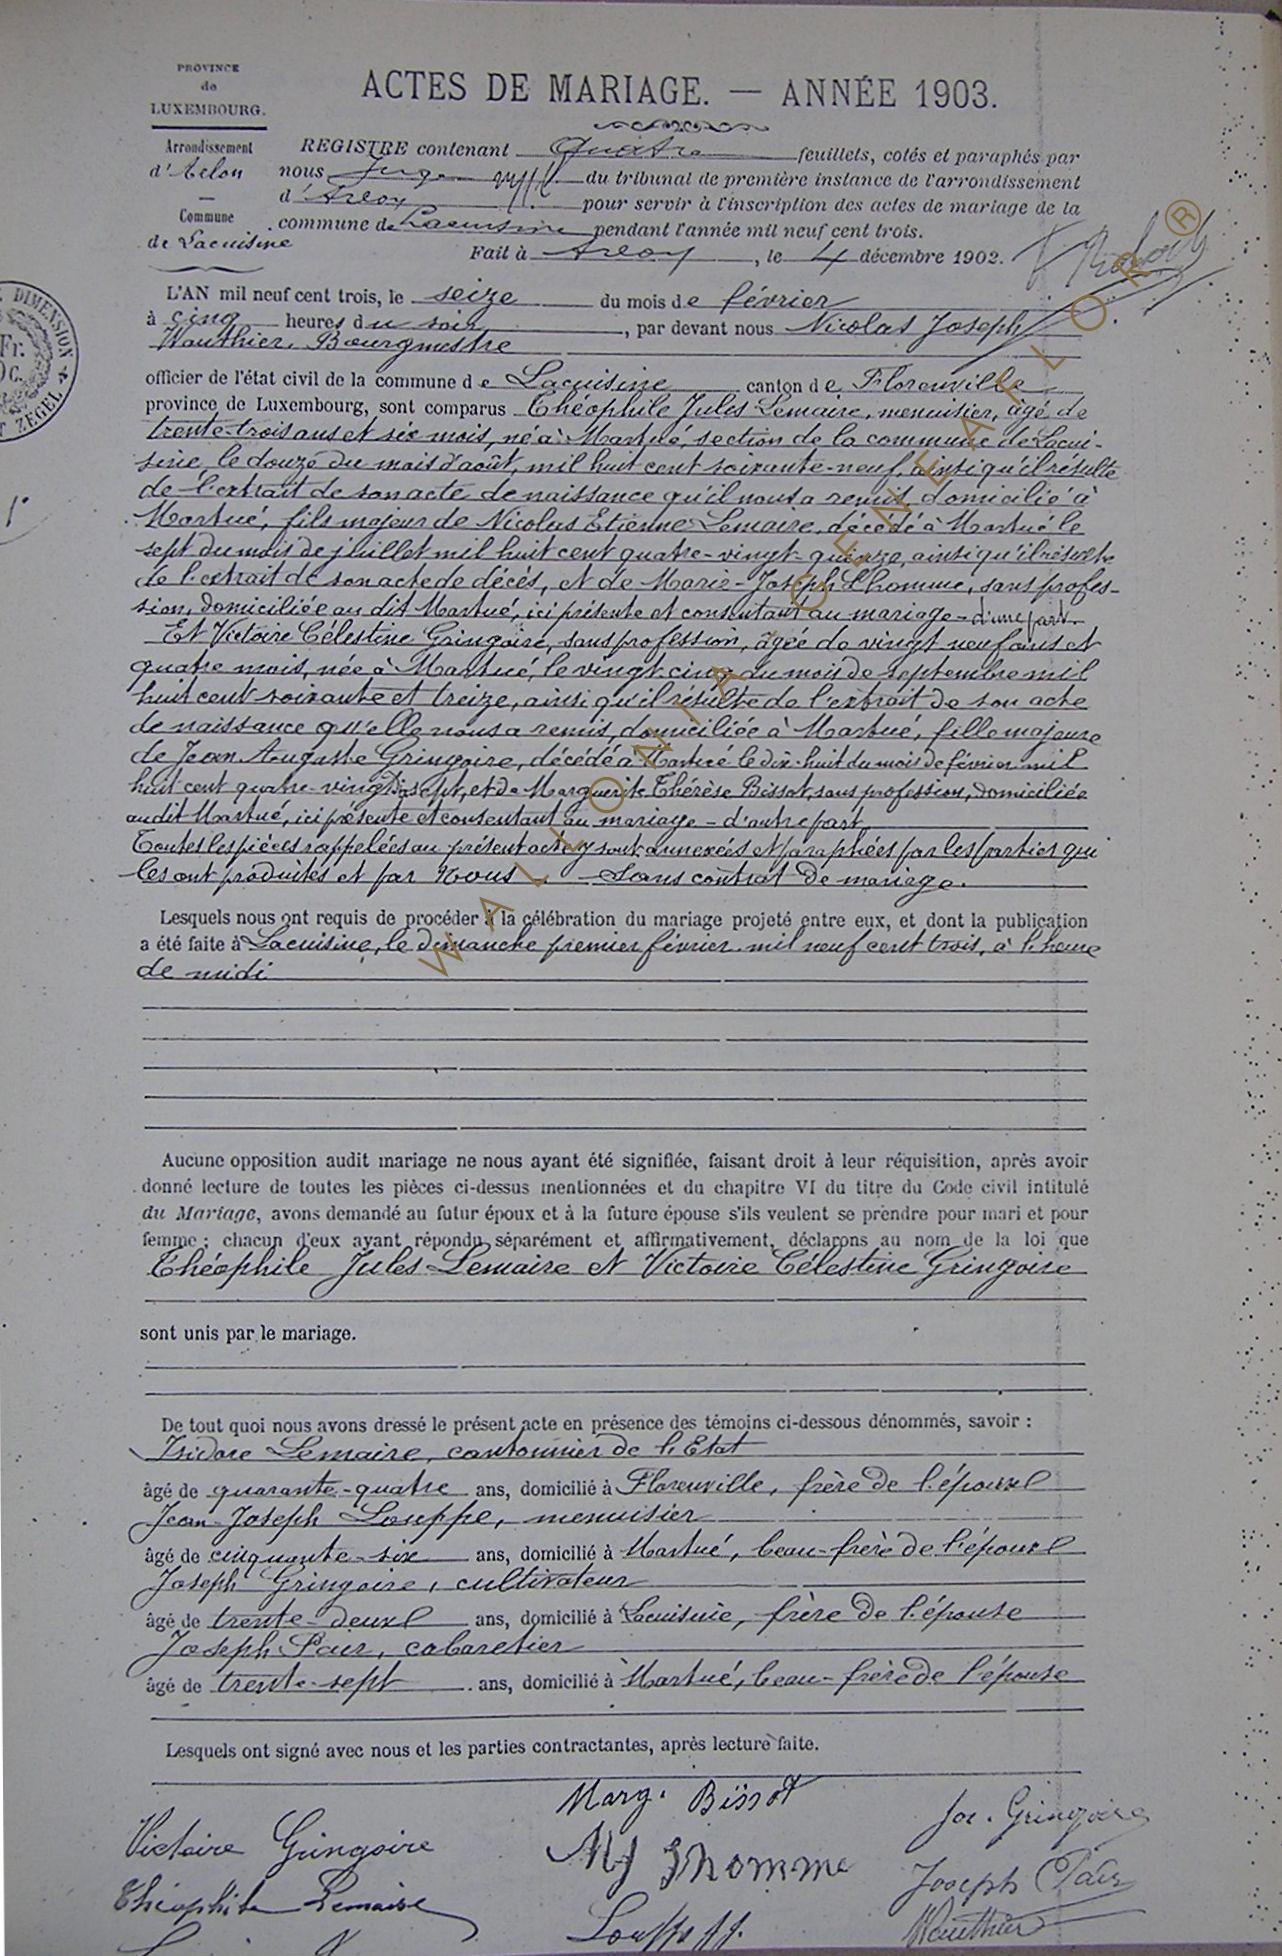 PROVINCE
de
LUXEMBOURG.
Arrondissement
d'Arlon
Commune
de Lacuisine
ACTES DE MARIAGE. — ANNÉE 1903.
REGISTRE contenant Quatre feuillets, cotés et paraphés par
nous Juge du tribunal de première instance de l'arrondissement
d'Arlon pour servir à l'inscription des actes de mariage de la
commune de Lacuisine pendant l'année mil neuf cent trois.
Fait à Arlon, le 4 décembre 1902.
DIMENSION
Fr.
ZEGEL
L'AN mil neuf cent trois, le seize du mois de février
à cinq heures du soir, par devant nous Nicolas Joseph
Wauthier, Bourgmestre
officier de l'état civil de la commune de Lacuisine canton de Florenville
province de Luxembourg, sont comparus Théophile Jules Lemaire, menuisier, âgé de
trente-trois ans et six mois, né à Martué, section de la commune de Lacui-
sine, le douze du mois d'août, mil huit cent soixante-neuf, ainsi qu'il résulte
de l'extrait de son acte de naissance qu'il nous a remis, domicilié à
Martué, fils majeur de Nicolas Etienne Lemaire, décédé à Martué le
sept du mois de juillet mil huit cent quatre-vingt-quinze, ainsi qu'il résulte
de l'extrait de son acte de décès, et de Marie-Joseph Lhomme, sans profes-
sion, domiciliée au dit Martué, ici présente et consentant au mariage - d'une part.
Et Victoire Célestine Gringoire, sans profession, âgée de vingt neuf ans et
quatre mois, née à Martué, le vingt-cinq du mois de septembre mil
huit cent soixante et treize, ainsi qu'il résulte de l'extrait de son acte
de naissance qu'elle nous a remis, domiciliée à Martué, fille majeure
de Jean Auguste Gringoire, décédé à Martué le dix-huit du mois de février mil
huit cent quatre-vingt dix sept, et de Marguerite Thérèse Bissot, sans profession, domiciliée
au dit Martué, ici présente et consentant au mariage - d'autre part
Toutes les pièces rappelées au présent acte y sont annexées et paraphées par les parties qui
les ont produites et par Nous. — Sans contrat de mariage.
Lesquels nous ont requis de procéder à la célébration du mariage projeté entre eux, et dont la publication
a été faite à Lacuisine, le dimanche premier février mil neuf cent trois, à l'heure
de midi
Aucune opposition audit mariage ne nous ayant été signifiée, faisant droit à leur réquisition, après avoir
donné lecture de toutes les pièces ci-dessus mentionnées et du chapitre VI du titre du Code civil intitulé
du Mariage, avons demandé au futur époux et à la future épouse s'ils veulent se prendre pour mari et pour
femme ; chacun d'eux ayant répondu séparément et affirmativement, déclarons au nom de la loi que
Théophile Jules Lemaire et Victoire Célestine Gringoire
sont unis par le mariage.
De tout quoi nous avons dressé le présent acte en présence des témoins ci-dessous dénommés, savoir :
Isidore Lemaire, cantonnier de l'Etat
âgé de quarante-quatre ans, domicilié à Florenville, frère de l'époux
Jean-Joseph Louppe, menuisier
âgé de cinquante-six ans, domicilié à Martué, beau-frère de l'époux
Joseph Gringoire, cultivateur
âgé de trente-deux ans, domicilié à Lacuisine, frère de l'épouse
Joseph Pair, cabaretier
âgé de trente-sept ans, domicilié à Martué, beau-frère de l'épouse
Lesquels ont signé avec nous et les parties contractantes, après lecture faite.
Marg. Bissot
Victoire Gringoire
Jos. Gringoire
MJ Lhomme
Joseph Pair
Théophile Lemaire
Louppe JJ.
Wauthier
WALLONIA - GENEAFLOR®